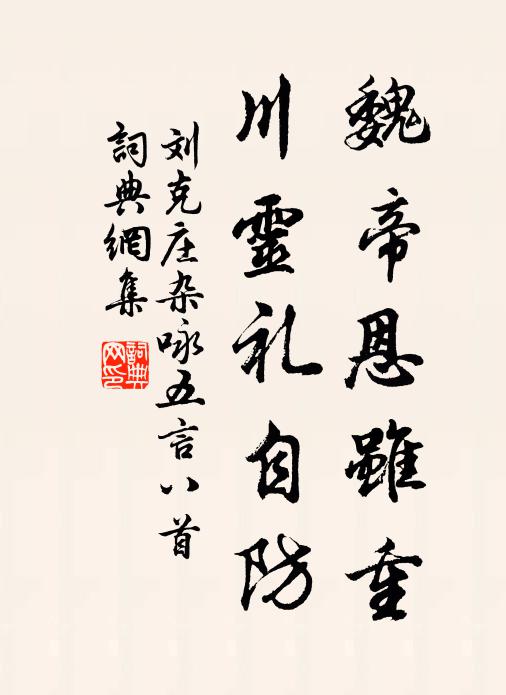 魏帝恩雖重
川靈礼自防
刘克庄杂咏五言八首
詞典網集
詞典網印